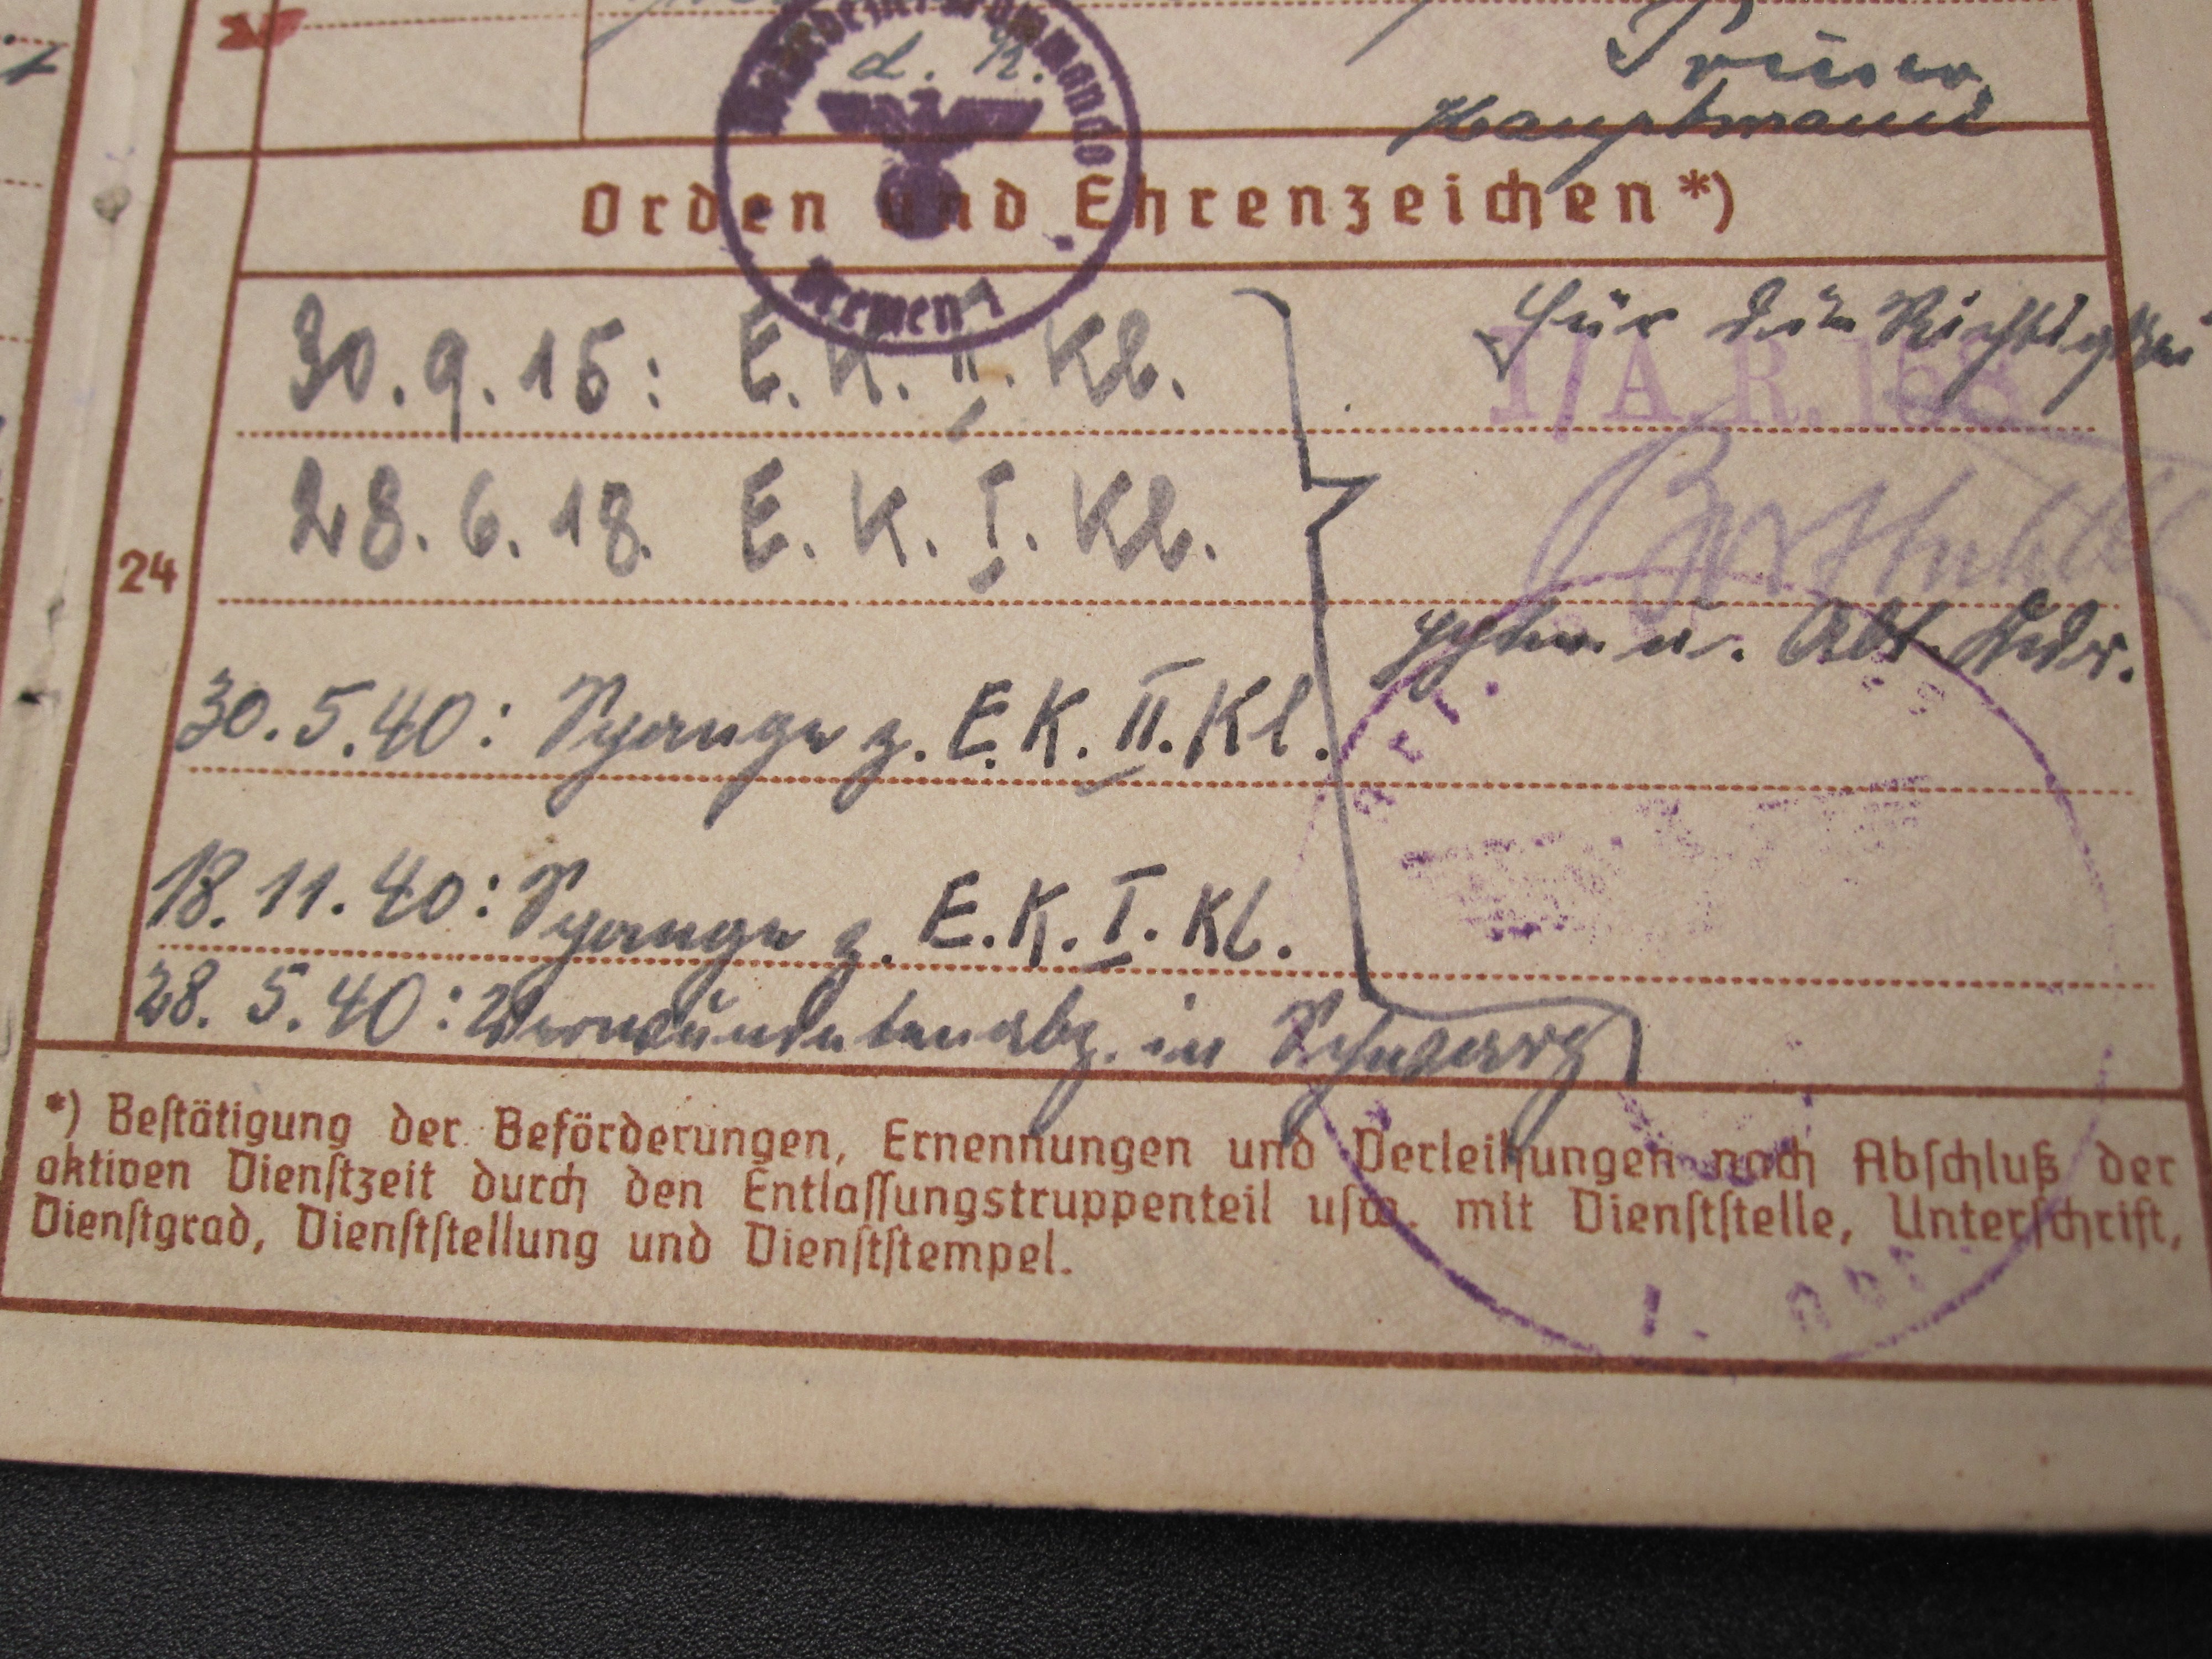 d. R.
Hauptmann
Orden und Ehrenzeichen*)
Bremen I
30.9.15: E.K. II. Kl.
Für die Richtigkei
I/A.R. 158
28.6.18. E.K. I. Kl.
24
Hptm. u. Abt. Kdr.
30.5.40: Spange z. E.K. II. Kl.
18.11.40: Spange z. E.K. I. Kl.
28.5.40: Verwundetenabz. in Schwarz
*) Bestätigung der Beförderungen, Ernennungen und Verleihungen nach Abschluß der
aktiven Dienstzeit durch den Entlassungstruppenteil usw. mit Dienststelle, Unterschrift,
Dienstgrad, Dienststellung und Dienststempel.
I. Abt.